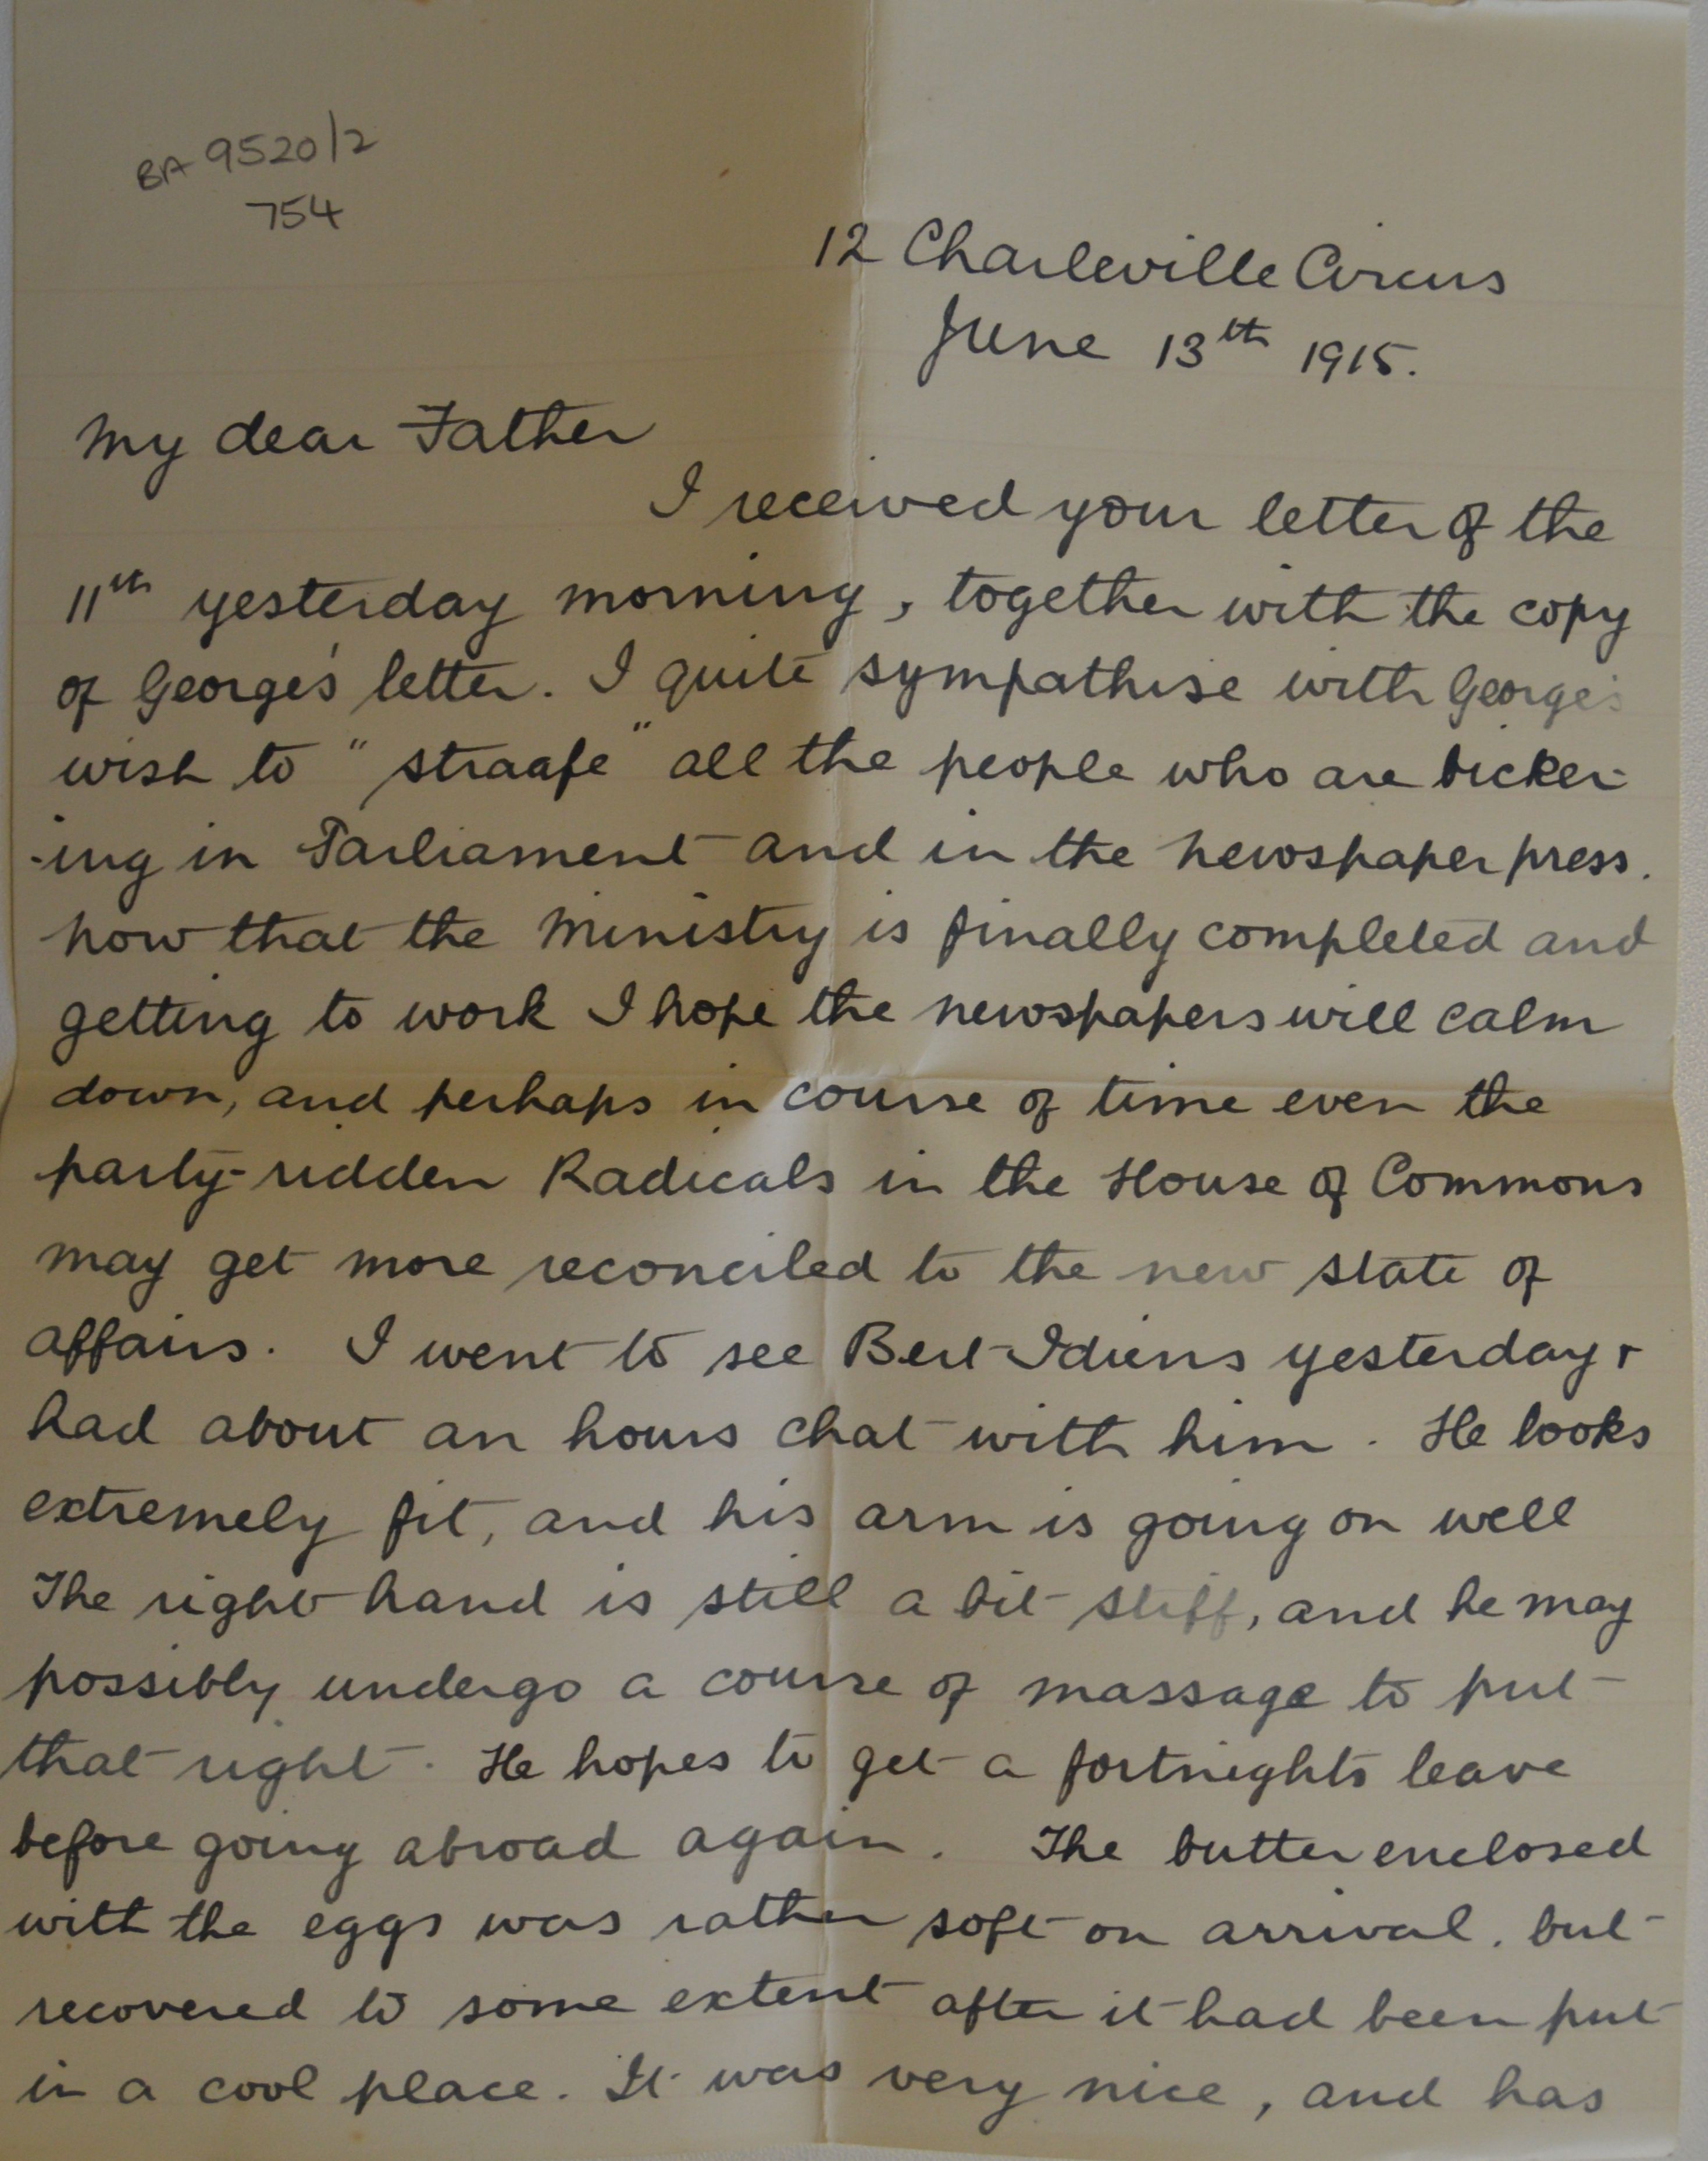 BA 9520/2
754
12 Charleville Circus
June 13th 1915.
My dear Father
I received your letter of the
11th yesterday morning, together with the copy
of George's letter. I quite sympathise with George's
wish to "straafe" all the people who are bicker-
-ing in Parliament and in the newspaper press.
Now that the Ministry is finally completed and
getting to work I hope the newspapers will calm
down, and perhaps in course of time even the
party-ridden Radicals in the House of Commons
may get more reconciled to the new state of
affairs. I went to see Bert Idiens yesterday +
had about an hours chat with him. He looks
extremely fit, and his arm is going on well
The right hand is still a bit stiff, and he may
possibly undergo a course of massage to put
that right. He hopes to get a fortnights leave
before going abroad again. The butter enclosed
with the eggs was rather soft on arrival, but
recovered to some extent after it had been put
in a cool place. It was very nice, and has